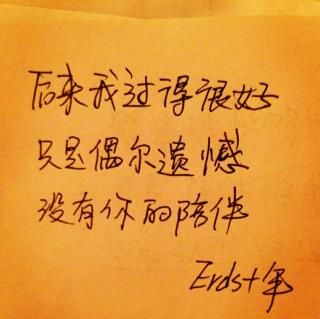 后来我过得很好
只是偶尔遗憾
没有你的陪伴
Erds十年